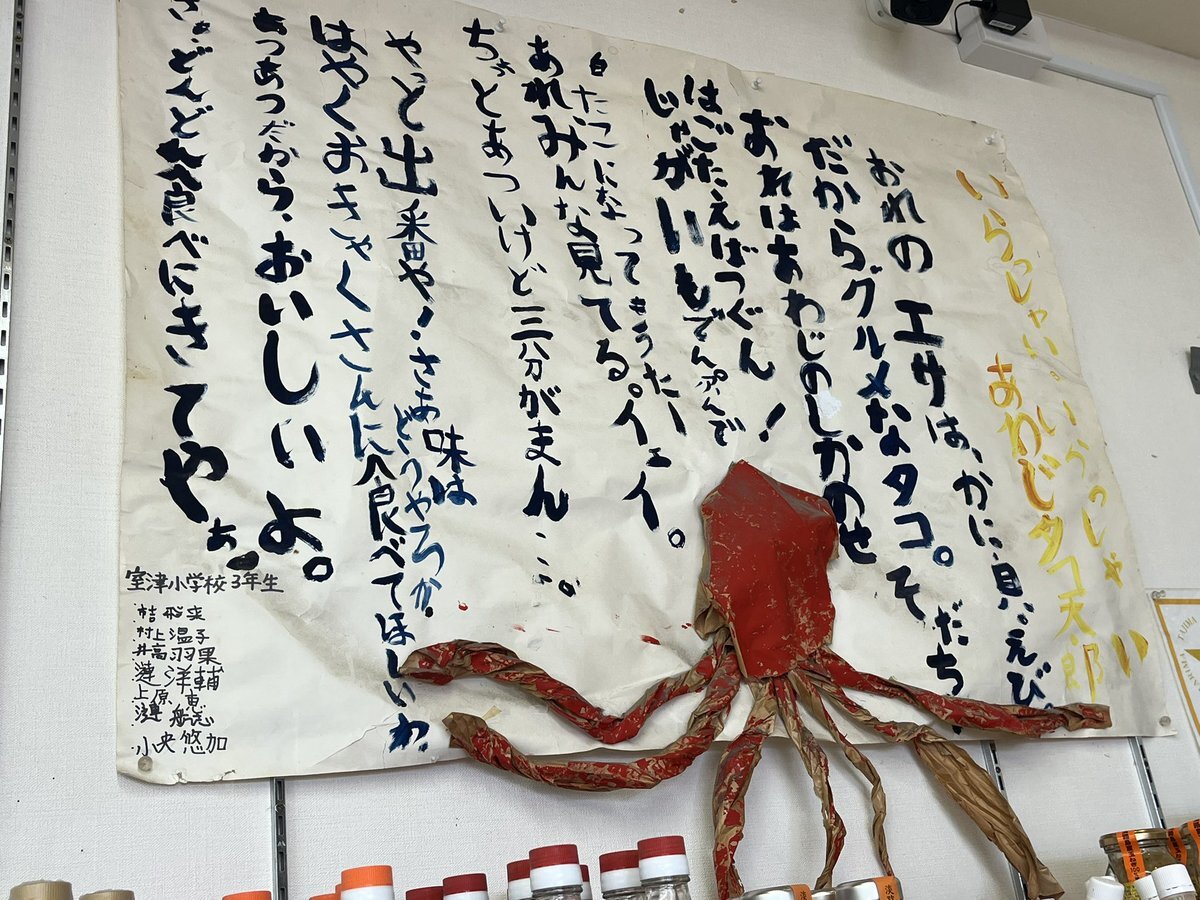 いらっしゃい。いらっしゃい
あわじタコ天郎
おれのエサは、かに、貝、えび。
だからグルメなタコ。
おれはあわじのしかのせそだち
はごたえばつぐん！
じゃがいもでんぷんで
白たこになってもうたー
あれみんな見てる。イェイ。
ちょっとあついけど三分がまん…。
やっと出番や！さあ味は
どうやろか。
はやくおきゃくさんに食べてほしいわ。
あつあつだから、おいしいよ。
さぁどんどん食べにきてやぁ。
室津小学校3年生
村上温子
井高羽果
漣洋輔
上原恵
小央悠加